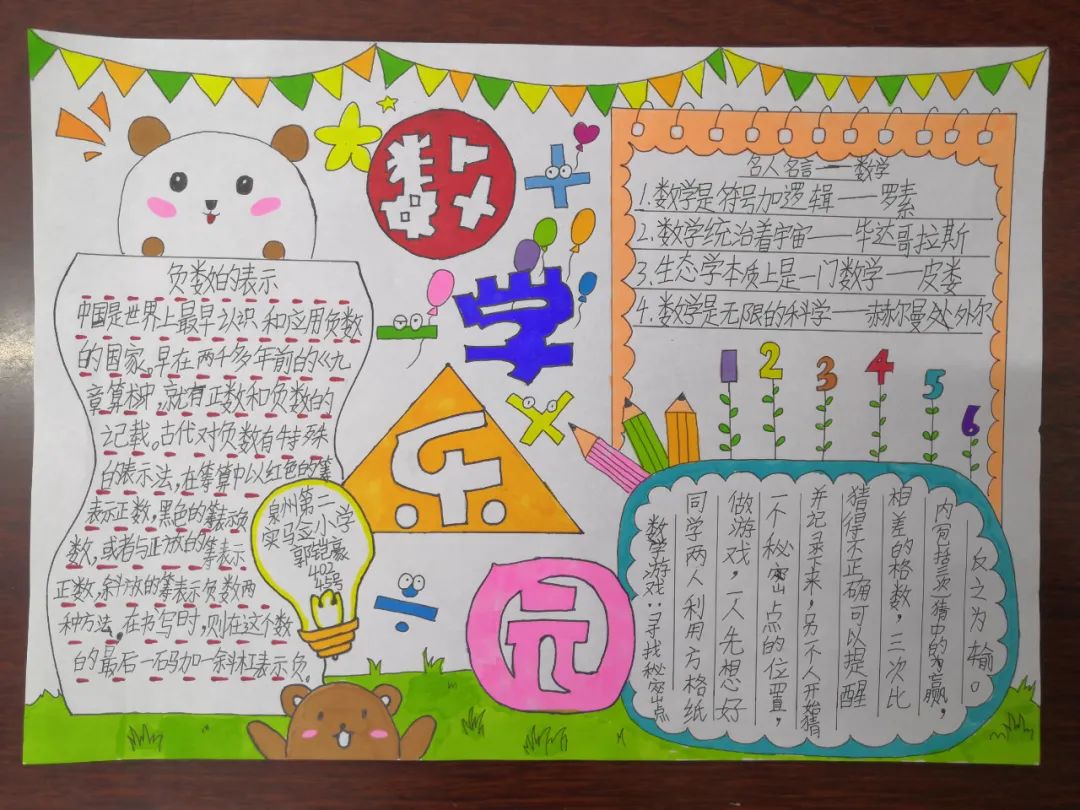 数
学
乐
园
负数的表示
中国是世界上最早认识和应用负数
的国家。早在两千多年前的《九
章算术》中,就有正数和负数的
记载。古代对负数有特殊
的表示法,在筹算中以红色的筹
表示正数,黑色的筹表示负
数,或者与正放的筹表示
正数,斜放的筹表示负数两
种方法,在书写时,则在这个数
的最后一码加一斜杠表示负。
泉州第二
实验小学
402
45号
名人名言——数学
1.数学是符号加逻辑——罗素
2.数学统治着宇宙——毕达哥拉斯
3.生态学本质上是一门数学——皮娄
4.数学是无限的科学——赫尔曼外尔
1
2
3
4
5
6
数学游戏:寻找秘密点
同学两人利用方格纸
做游戏,一人先想好
一个秘密点的位置,
并记录下来,另一个人开始猜
猜得不正确可以提醒
相差的格数,三次比
内包括三次猜中的为赢,
反之为输。